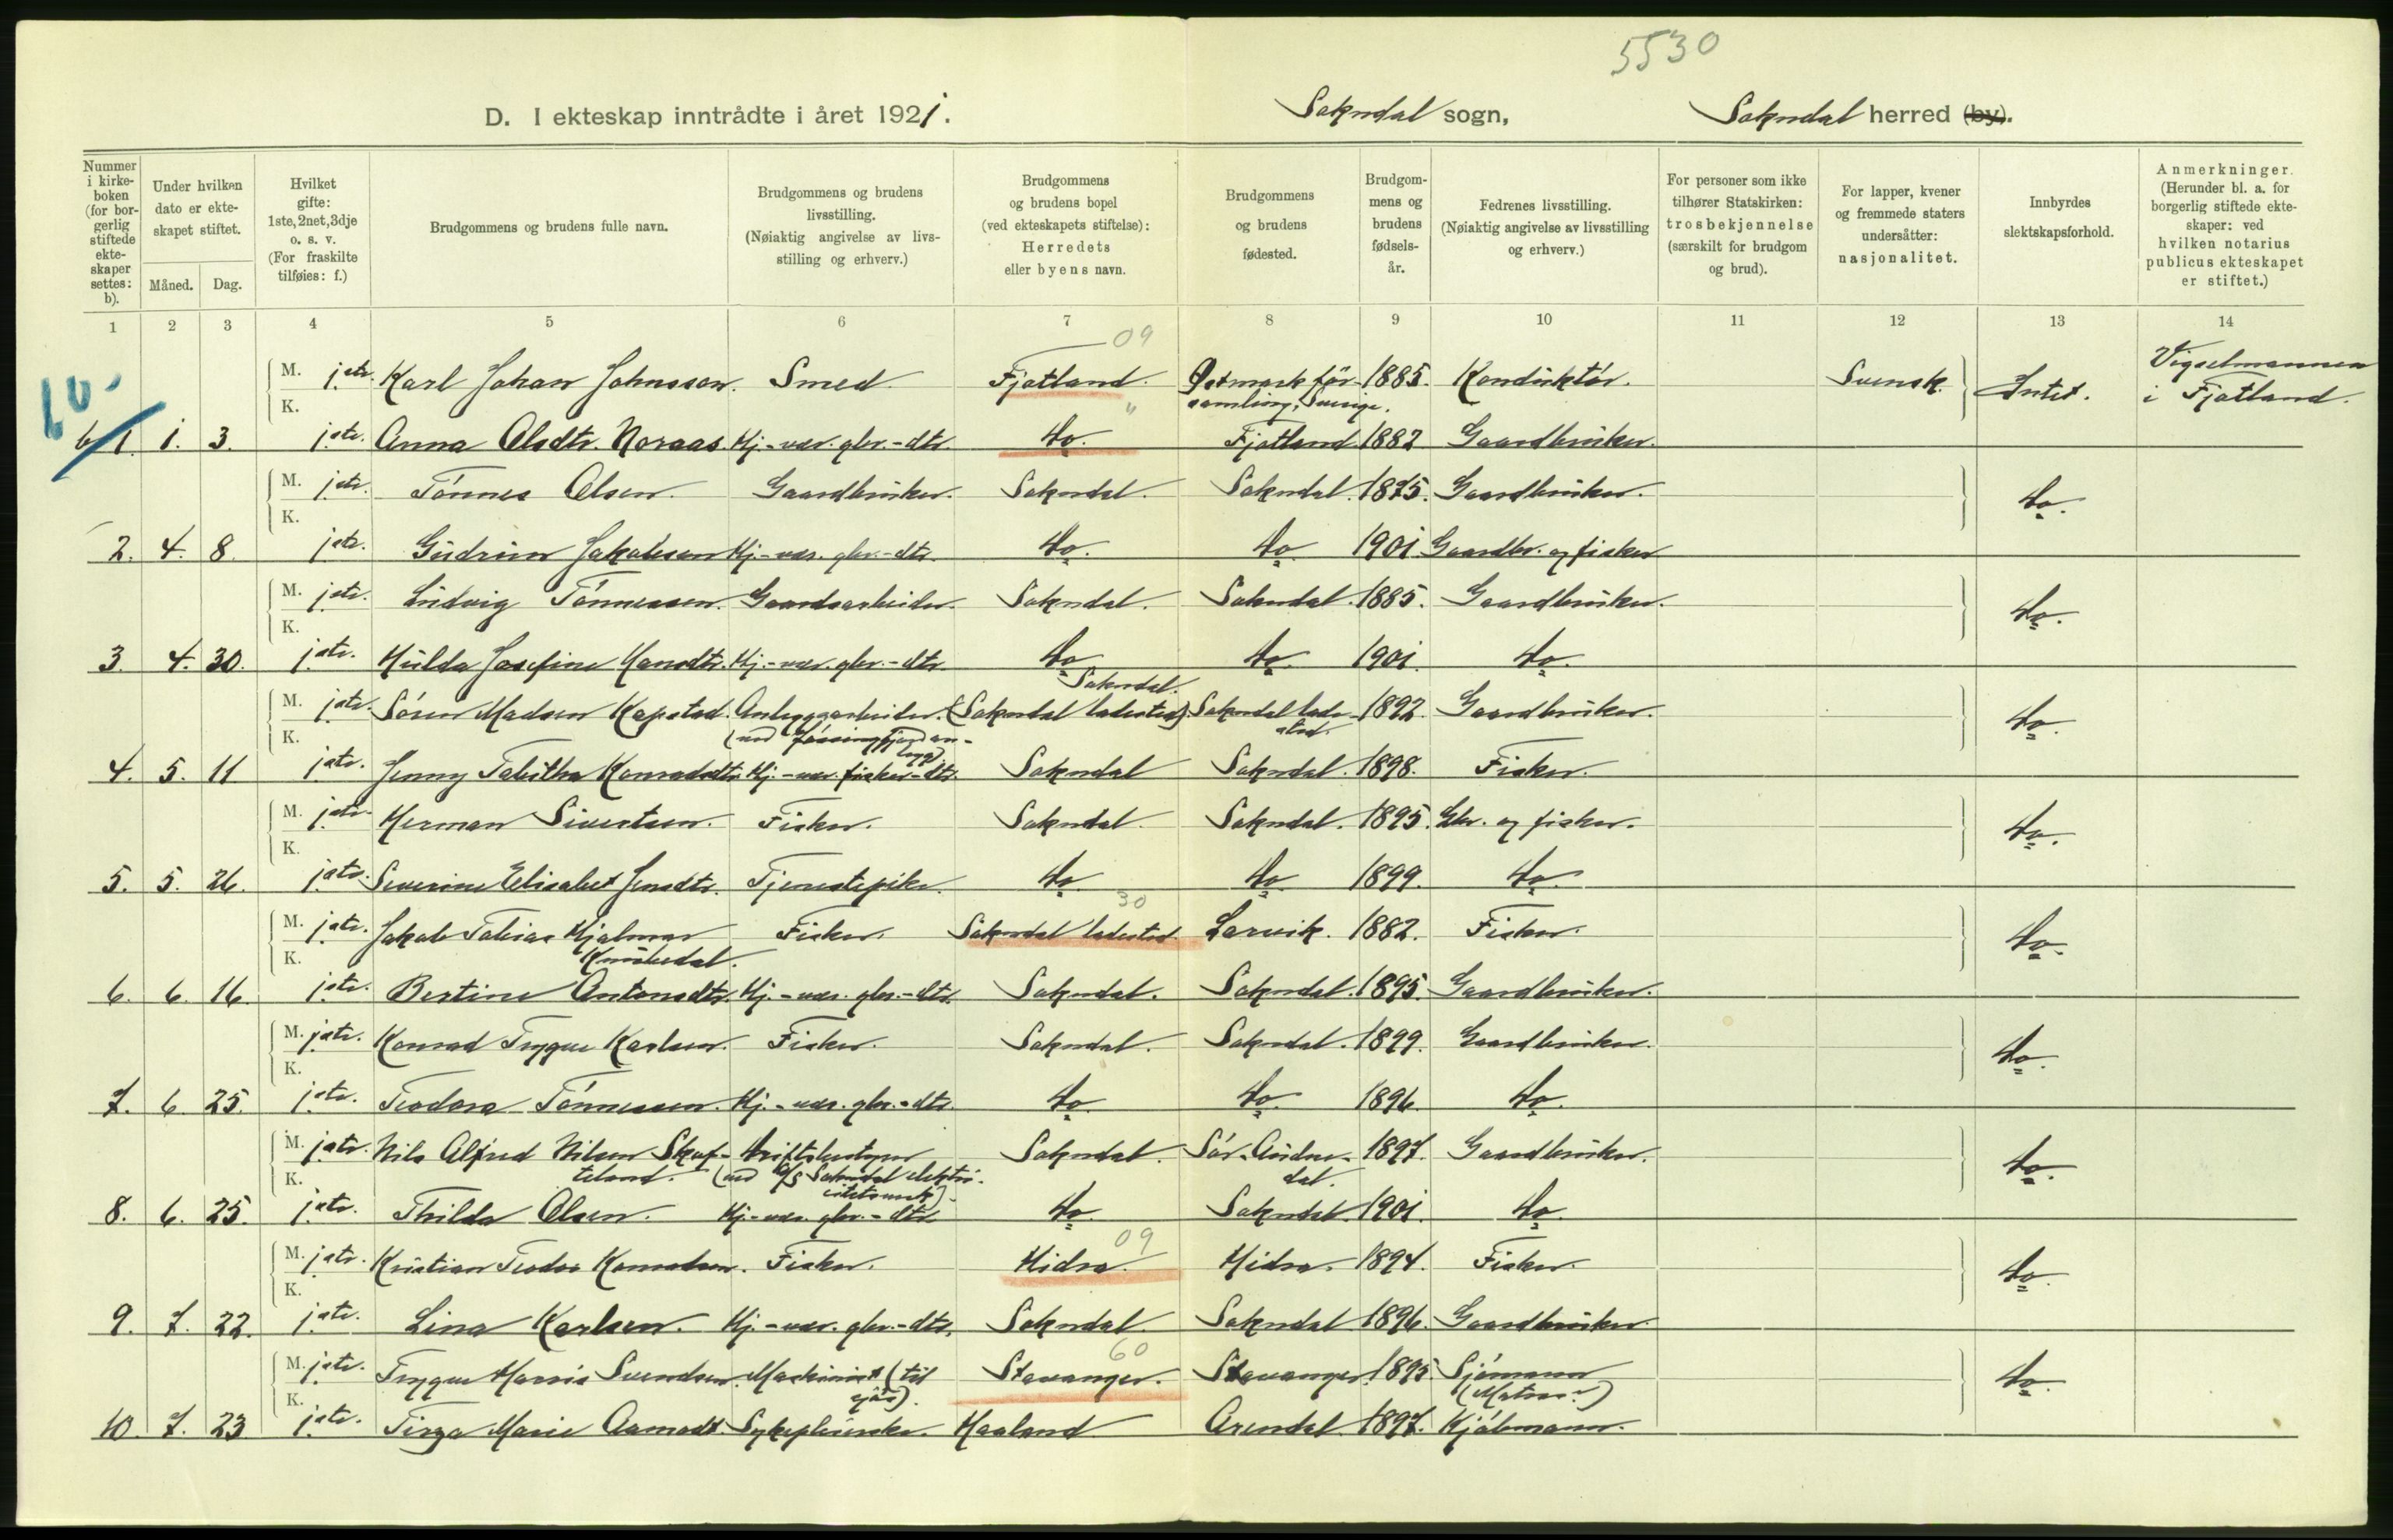 5530
D. I ekteskap inntrådte i året 1921. Sokndal sogn, Sokndal herred (by).
Nummer i kirke-boken (for bor-gerlig stiftede ekte-skaper settes: b).
Under hvilken dato er ekte-skapet stiftet.
Måned. Dag.
Hvilket gifte: 1ste, 2net, 3dje o. s. v. (For fraskilte tilføies: f.)
Brudgommens og brudens fulle navn.
Brudgommens og brudens livsstilling. (Nøiaktig angivelse av livs-stilling og erhverv.)
Brudgommens og brudens bopel (ved ekteskapets stiftelse): Herredets eller byens navn.
Brudgommens og brudens fødested.
Brudgom-mens og brudens fødsels-år.
Fedrenes livsstilling. (Nøiaktig angivelse av livsstilling og erhverv.)
For personer som ikke tilhører Statskirken: trosbekjennelse (særskilt for brudgom og brud).
For lapper, kvener og fremmede staters undersåtter: nasjonalitet.
Innbyrdes slektskapsforhold.
Anmerkninger. (Herunder bl. a. for borgerlig stiftede ekte-skaper: ved hvilken notarius publicus ekteskapet er stiftet.)
1 2 3 4 5 6 7 8 9 10 11 12 13 14
09
10.
M. 1ste. Karl Johan Johnsson. Smed. Fjotland. Østmark för-samling, Sverige. 1885. Konduktör. Svensk. Intet. Vigselmannen i Fjotland.
K.
b/1. 1. 3. 1ste. Anna Olsdtr. Noraas. Hj.-vær. gbr.-dtr. Do. Fjotland. 1882 Gaardbruker.
M. 1ste. Tönnes Olsen. Gaardbruker. Sokndal. Sokndal. 1875. Gaardbruker. Do.
K.
2. 4. 8. 1ste. Gudrun Jakobsen Hj.-vær. gbr.-dtr. Do. Do 1901 Gaardbr. og fisker
M. 1ste. Ludvig Tönnessen. Gaardsarbeider. Sokndal. Sokndal. 1885. Gaardbruker. Do.
K.
3. 4. 30. 1ste. Hulda Josefine Hansdtr. Hj.-vær. gbr.-dtr. Do Do. 1901. Do.
M. 1ste. Sören Madsen Kapstad. Anleggsarbeider. Sokndal. (Sokndal ladested). Sokndal lade-sted. 1892. Gaardbruker. Do.
K.
4. 5. 11 1ste. Jenny Tabitha Konradsdtr. Hj.-vær. fisker-dtr. Sokndal Sokndal. 1898. Fisker.
M. 1ste. Herman Sivertsen. Fisker. Sokndal. Sokndal. 1895. Gbr. og fisker. Do.
K.
5. 5. 26. 1ste. Severine Elisabet Jensdtr. Tjenestepike. Do Do 1899. Do.
30
M. 1ste. Jakob Tobias Hjalmar Knubedal. Fisker. Sokndal ladested. Larvik. 1882. Fisker. Do.
K.
6. 6. 16. 1ste. Bertine Antonsdtr. Hj.-vær. gbr.-dtr. Sokndal. Sokndal. 1895. Gaardbruker.
M. 1ste. Konrad Trygve Karlsen. Fisker. Sokndal. Sokndal. 1899. Gaardbruker. Do.
K.
7. 6. 25. 1ste. Teodora Tönnessen. Hj.-vær. gbr.-dtr. Do. Do. 1896. Do.
M. 1ste. Nils Alfred Nilsen Skaf-teland. Driftsbestyrer (ved A/S Sokndal elektri-citetsverk). Sokndal. Sör-Audne-dal. 1897. Gaardbruker. Do.
K.
8. 6. 25. 1ste. Thilda Olsen. Hj.-vær. gbr.-dtr. Do. Sokndal. 1901. Do.
09
M. 1ste. Kristian Teodor Konradsen. Fisker. Hidra. Hidra. 1894. Fisker. Do.
K.
9. 7. 22. 1ste. Lina Karlsen. Hj.-vær. gbr.-dtr. Sokndal. Sokndal 1896. Gaardbruker.
60
M. 1ste. Trygve Harris Svendsen. Maskinist (til sjös). Stavanger. Stavanger. 1895. Sjömann (Matros) Do.
K.
10. 7. 23 1ste. Tirza Marie Aamodt. Sykepleierske. Haaland Arendal. 1897. Kjöbmann.